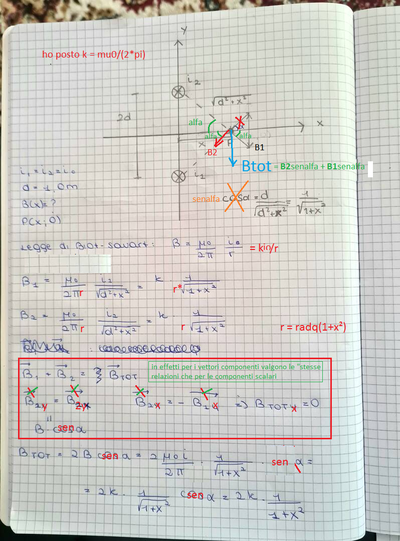 ho posto k = mu0/(2*pi)
y
i₂
√d²+x²
2d
alfa
alfa
x
P
x
B2
B1
i₁
Btot = B2senalfa + B1senalfa
i₁ = i₂ = i₀
d = 1,0m
B(x)?
P(x,0)
senalfa cosα = d/√d²+x² = 1/√1+x²
Legge di Biot-Savart: B = μ₀/2π i₀/r = ki₀/r
B₁ = μ₀/2πr i₂/√d²+x² = k r* 1/√1+x²
B₂ = μ₀/2πr i₂/√d²+x² = k · r 1/√1+x²
r = radq(1+x²)
B₁ + B₂ = B TOT
in effetti per i vettori componenti valgono le "stesse
relazioni che per le componenti scalari
B₁y = B₂y B₂x = - B₁x => B TOT x = 0
B sen α
B TOT = 2B sen α = 2 μ₀i/2π · 1/√1+x² · sen α =
= 2k · 1/√1+x² sen α = 2k · 1/1+x²